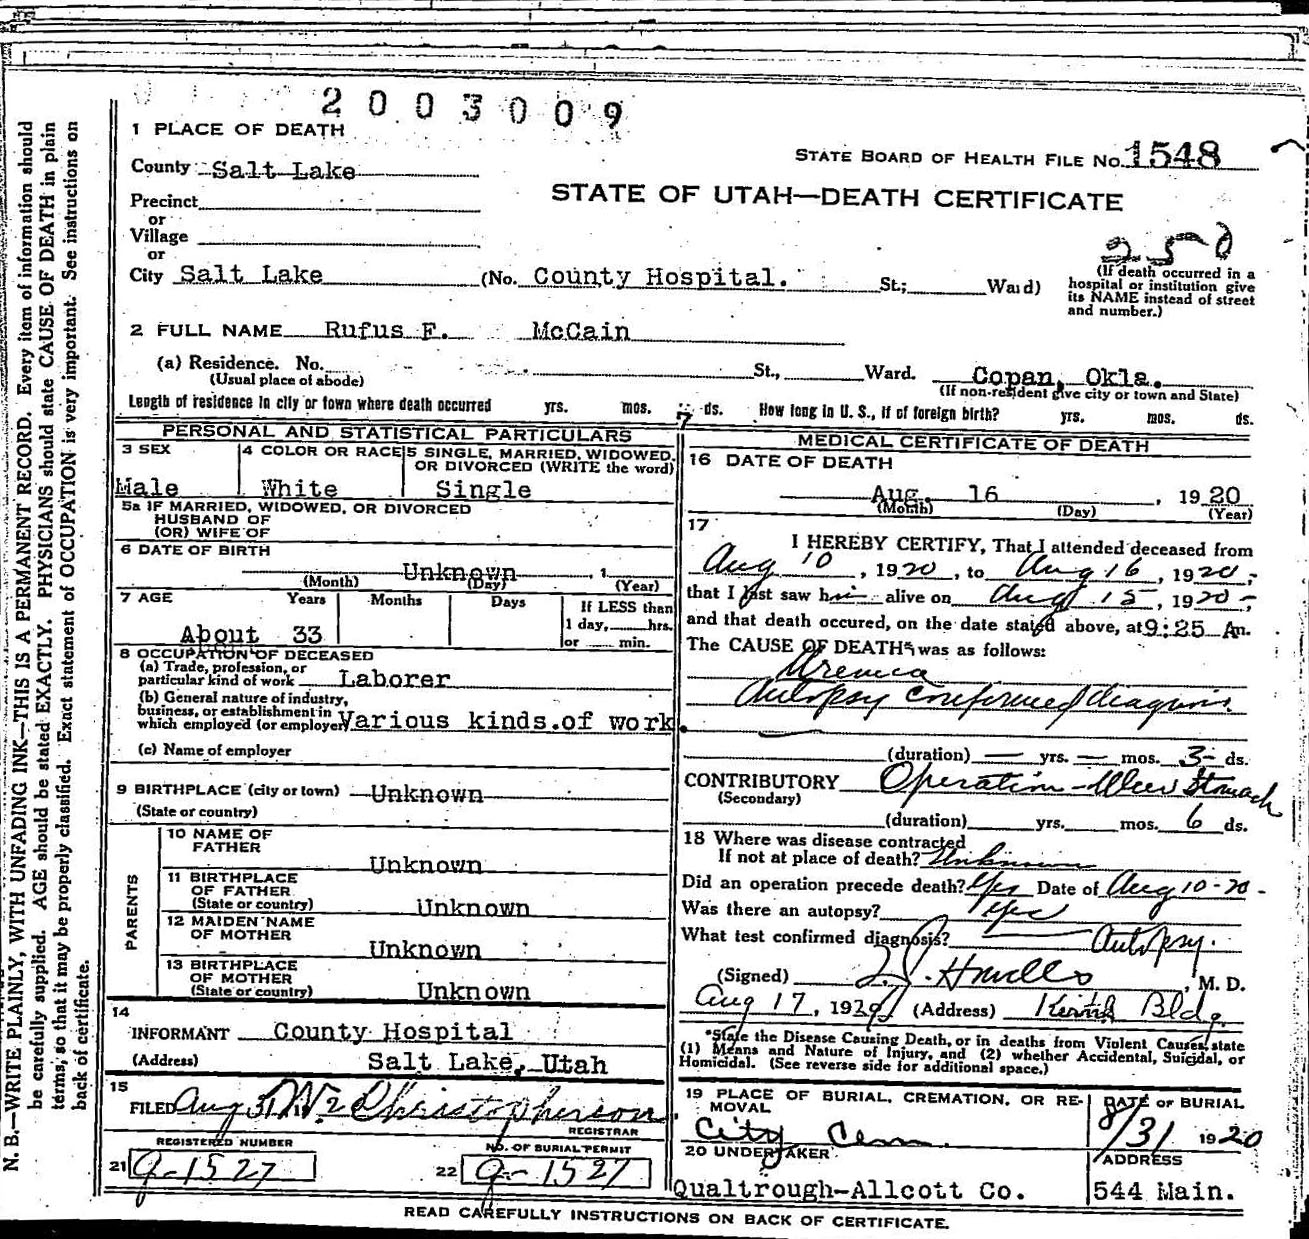 2003009
1 PLACE OF DEATH
STATE BOARD OF HEALTH FILE No. 1548
County Salt Lake
STATE OF UTAH—DEATH CERTIFICATE
Precinct
or
Village
or
250
City Salt Lake (No. County Hospital. St; Ward)
(If death occurred in a
hospital or institution give
its NAME instead of street
and number.)
2 FULL NAME Rufus F. McCain
(a) Residence. No. St., Ward. Copan, Okla.
(Usual place of abode) (If non-resident give city or town and State)
Length of residence in city or town where death occurred yrs. mos. 7 ds. How long in U. S., if of foreign birth? yrs. mos. ds.
PERSONAL AND STATISTICAL PARTICULARS
3 SEX 4 COLOR OR RACE 5 SINGLE, MARRIED, WIDOWED,
OR DIVORCED (WRITE the word)
Male White Single
5a IF MARRIED, WIDOWED, OR DIVORCED
HUSBAND OF
(OR) WIFE OF
6 DATE OF BIRTH
Unknown , 1
(Month) (Day) (Year)
7 AGE Years Months Days If LESS than
1 day, hrs.
About 33 or min.
8 OCCUPATION OF DECEASED
(a) Trade, profession, or
particular kind of work Laborer
(b) General nature of industry,
business, or establishment in
which employed (or employer) Various kinds.of work.
(c) Name of employer
9 BIRTHPLACE (city or town) Unknown
(State or country)
PARENTS
10 NAME OF
FATHER Unknown
11 BIRTHPLACE
OF FATHER
(State or country) Unknown
12 MAIDEN NAME
OF MOTHER Unknown
13 BIRTHPLACE
OF MOTHER
(State or country) Unknown
14
INFORMANT County Hospital
(Address) Salt Lake, Utah
15
FILED Aug 31 Christopherson
REGISTRAR
REGISTERED NUMBER NO. OF BURIAL PERMIT
21 9-1527 22 9-1527
MEDICAL CERTIFICATE OF DEATH
16 DATE OF DEATH
Aug. 16 , 1920
(Month) (Day) (Year)
17
I HEREBY CERTIFY, That I attended deceased from
Aug 10 , 1920 , to Aug 16 , 1920,
that I last saw him alive on Aug 15 , 1920,
and that death occured, on the date stated above, at 9:25 A m.
The CAUSE OF DEATH* was as follows:
Uremia
Autopsy confirmed diagnosis.
(duration) — yrs. — mos. 3 ds.
CONTRIBUTORY Operation - Ulcer Stomach
(Secondary)
(duration) yrs. mos. 6 ds.
18 Where was disease contracted
If not at place of death? Unknown
Did an operation precede death? Yes Date of Aug 10-20
Was there an autopsy? Yes
What test confirmed diagnosis? Autopsy.
(Signed) , M. D.
Aug 17, 1920 (Address) Bldg.
*State the Disease Causing Death, or in deaths from Violent Causes, state
(1) Means and Nature of Injury, and (2) whether Accidental, Suicidal, or
Homicidal. (See reverse side for additional space.)
19 PLACE OF BURIAL, CREMATION, OR RE-
MOVAL
City Cem.
DATE OF BURIAL
8/31 1920
20 UNDERTAKER ADDRESS
Qualtrough-Allcott Co. 544 Main.
READ CAREFULLY INSTRUCTIONS ON BACK OF CERTIFICATE.
N. B.—WRITE PLAINLY, WITH UNFADING INK—THIS IS A PERMANENT RECORD. Every item of information should
be carefully supplied. AGE should be stated EXACTLY. PHYSICIANS should state CAUSE OF DEATH in plain
terms, so that it may be properly classified. Exact statement of OCCUPATION is very important. See instructions on
back of certificate.